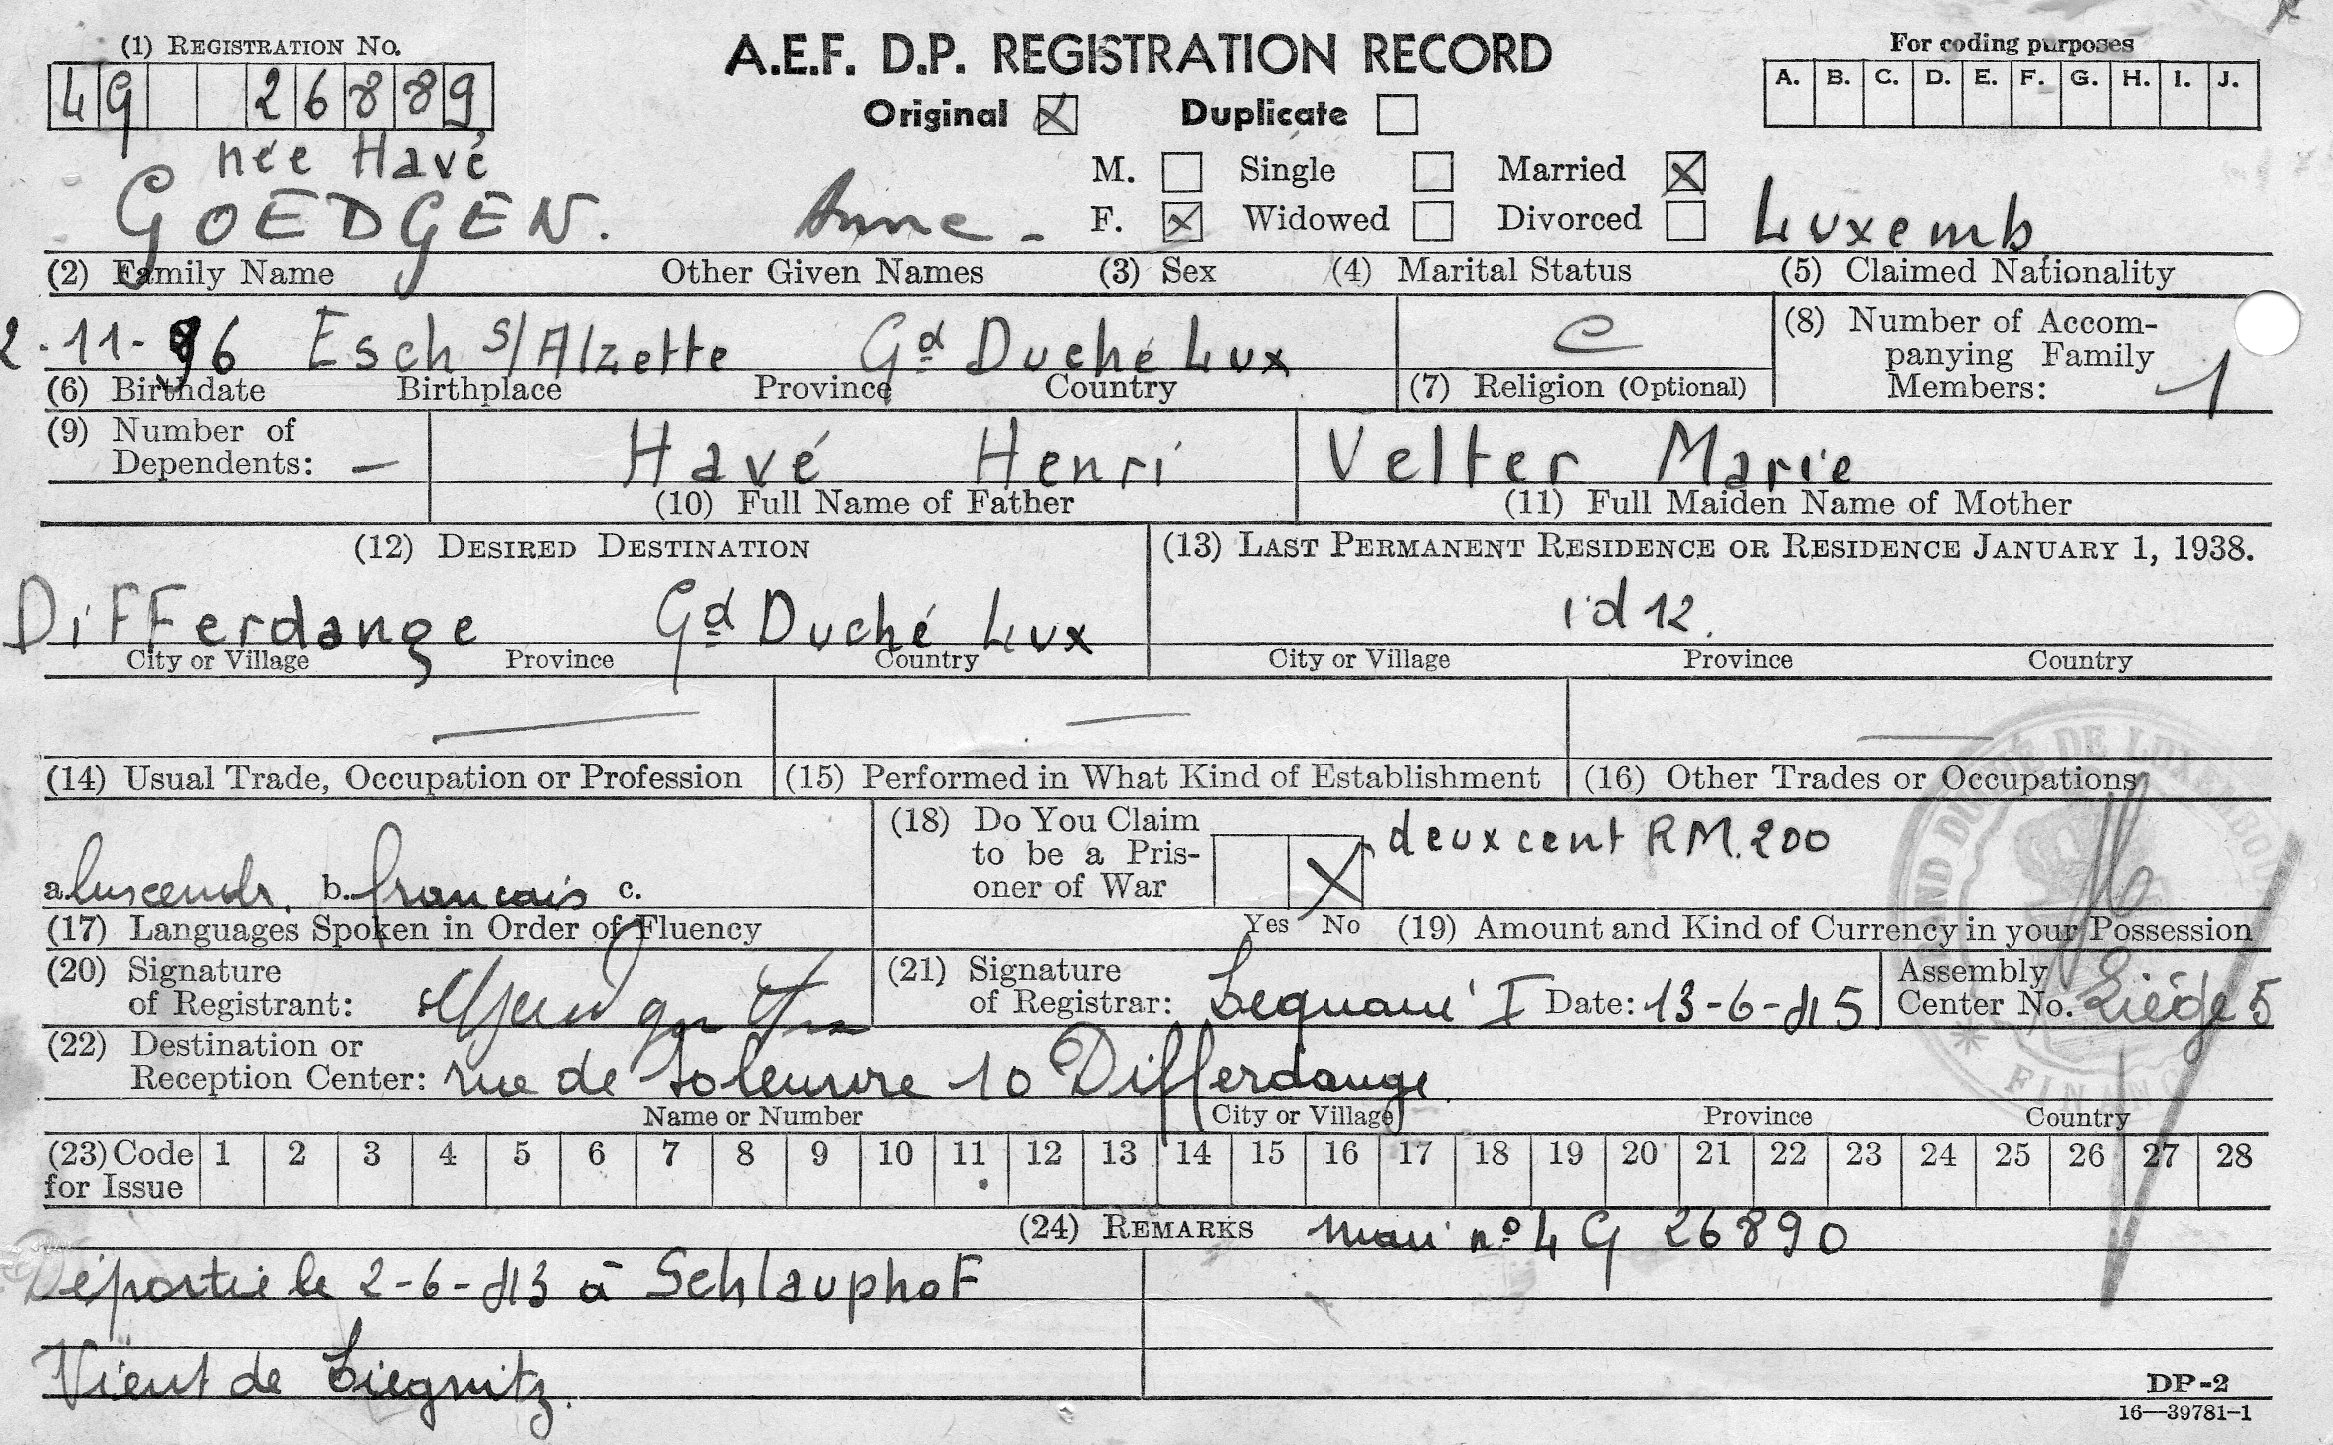 (1) REGISTRATION No.
A.E.F. D.P. REGISTRATION RECORD
For coding purposes
4G 26889
Original X Duplicate
A. B. C. D. E. F. G. H. I. J.
née Havé
M. Single Married X
GOEDGEN. Anne - F. X Widowed Divorced Luxemb
(2) Family Name Other Given Names (3) Sex (4) Marital Status (5) Claimed Nationality
2-11-96 Esch s/Alzette Gd Duché Lux C (8) Number of Accom-
panying Family
(6) Birthdate Birthplace Province Country (7) Religion (Optional) Members: 1
(9) Number of
Dependents: — Havé Henri Velter Marie
(10) Full Name of Father (11) Full Maiden Name of Mother
(12) DESIRED DESTINATION (13) LAST PERMANENT RESIDENCE OR RESIDENCE JANUARY 1, 1938.
Differdange Gd Duché Lux id 12.
City or Village Province Country City or Village Province Country
— — —
(14) Usual Trade, Occupation or Profession (15) Performed in What Kind of Establishment (16) Other Trades or Occupations
(18) Do You Claim
to be a Pris-
oner of War X deux cent RM. 200
a. luxemb. b. francais c.
(17) Languages Spoken in Order of Fluency Yes No (19) Amount and Kind of Currency in your Possession
(20) Signature
of Registrant: (21) Signature
of Registrar: Date: 13-6-45 Assembly
Center No. Liége 5
(22) Destination or
Reception Center: rue de Soleuvre 10 Differdange
Name or Number City or Village Province Country
(23) Code
for Issue 1 2 3 4 5 6 7 8 9 10 11 12 13 14 15 16 17 18 19 20 21 22 23 24 25 26 27 28
(24) REMARKS mari no 4G 26890
Déportée le 2-6-43 à Schlauphof
Vient de Liegnitz.
DP-2
16—39781-1